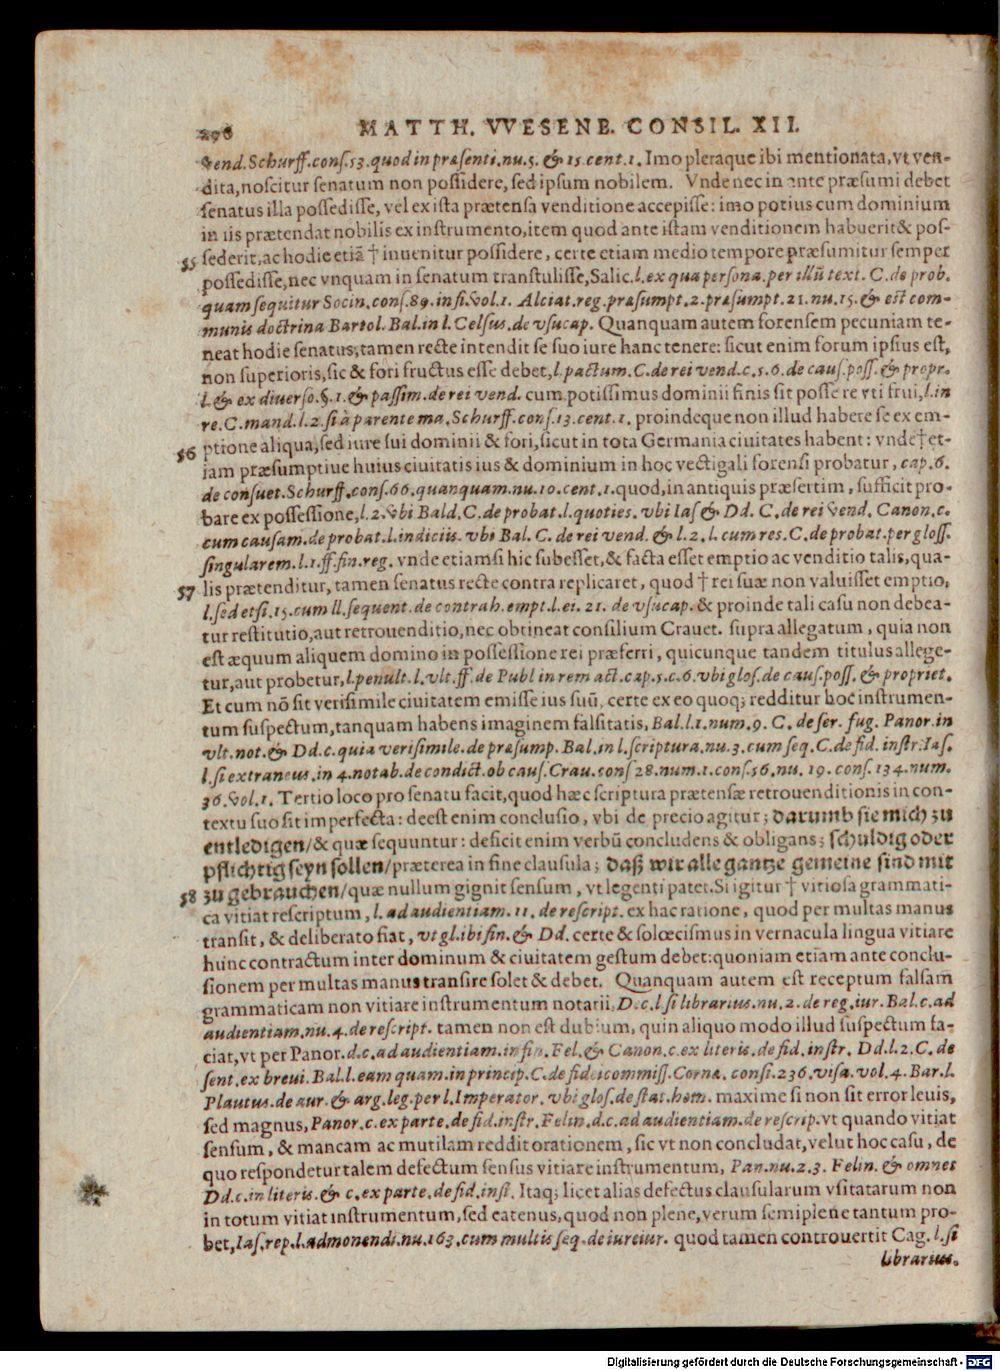 296 MATTH. VVESENB. CONSIL. XII.
vend. Schurff. cons. 53. quod in præsenti. nu. 5. & 15. cent. 1. Imo pleraque ibi mentionata, vt ven-
dita, noscitur senatum non possidere, sed ipsum nobilem. Vnde nec in ante præsumi debet
senatus illa possedisse, vel ex ista prætensa venditione accepisse: imo potius cum dominium
in iis prætendat nobilis ex instrumento, item quod ante istam venditionem habuerit & pos-
sederit, ac hodie etiā † inuenitur possidere, certe etiam medio tempore præsumitur semper
55 possedisse, nec vnquam in senatum transtulisse, Salic. l. ex qua persona. per illū text. C. de prob.
quam sequitur Socin. cons. 89. in fi. vol. 1. Alciat. reg. præsumpt. 2. præsumpt. 21. nu. 15. & est com-
munis doctrina Bartol. Bal. in l. Celsus. de vsucap. Quanquam autem forensem pecuniam te-
neat hodie senatus, tamen recte intendit se suo iure hanc tenere: sicut enim forum ipsius est,
non superioris, sic & fori fructus esse debet, l. pactum. C. de rei vend. c. 5. 6. de caus. poss. & propr.
l. & ex diuerso. §. 1. & passim. de rei vend. cum potissimus dominii finis sit posse re vti frui, l. in
re. C. mand. l. 2. si à parente ma. Schurff. cons. 13. cent. 1. proindeque non illud habere se ex em-
ptione aliqua, sed iure sui dominii & fori, sicut in tota Germania ciuitates habent: vnde † et-
56 iam præsumptiue huius ciuitatis ius & dominium in hoc vectigali forensi probatur, cap. 6.
de consuet. Schurff. cons. 66. quanquam. nu. 10. cent. 1. quod, in antiquis præsertim, sufficit pro-
bare ex possessione, l. 2. vbi Bald. C. de probat. l. quoties. vbi Ias & Dd. C. de rei vend. Canon. c.
cum causam. de probat. l. indiciis. vbi Bal. C. de rei vend. & l. 2. l. cum res. C. de probat. per gloss.
singularem. l. 1. ff. fin. reg. vnde etiamsi hic subesset, & facta esset emptio ac venditio talis, qua-
57 lis prætenditur, tamen senatus recte contra replicaret, quod † rei suæ non valuisset emptio,
l. sed etsi. 15. cum ll. sequent. de contrah. empt. l. ei. 21. de vsucap. & proinde tali casu non debea-
tur restitutio, aut retrouenditio, nec obtineat consilium Crauet. supra allegatum, quia non
est æquum aliquem domino in possessione rei præferri, quicunque tandem titulus allege-
tur, aut probetur, l. penult. l. vlt. ff. de Publ in rem act. cap. 5. c. 6. vbi glos. de caus. poss. & propriet.
Et cum nō sit verisimile ciuitatem emisse ius suū, certe ex eo quoq; redditur hoc instrumen-
tum suspectum, tanquam habens imaginem falsitatis, Bal. l. 1. num. 9. C. de ser. fug. Panor. in
vlt. not. & Dd. c. quia verisimile. de præsump. Bal. in l. scriptura. nu. 3. cum seq. C. de fid. instr. Ias.
l. si extraneus. in 4. notab. de condict. ob caus. Crau. cons 28. num. 1. cons. 56. nu. 19. cons. 134. num.
36. vol. 1. Tertio loco pro senatu facit, quod hæc scriptura prætensæ retrouenditionis in con-
textu suo sit imperfecta: deest enim conclusio, vbi de precio agitur; darumb sie mich zu
entledigen/ & quæ sequuntur: deficit enim verbū concludens & obligans; schuldig oder
pflichtig seyn sollen/ præterea in fine clausula; daß wir alle gantze gemeine sind mit
58 zu gebrauchen/ quæ nullum gignit sensum, vt legenti patet. Si igitur † vitiosa grammati-
ca vitiat rescriptum, l. ad audientiam. 11. de rescript. ex hac ratione, quod per multas manus
transit, & deliberato fiat, vt gl. ibi fin. & Dd. certe & solœcismus in vernacula lingua vitiare
hunc contractum inter dominum & ciuitatem gestum debet: quoniam etiam ante conclu-
sionem per multas manus transire solet & debet. Quanquam autem est receptum falsam
grammaticam non vitiare instrumentum notarii, Dec. l. si librarius. nu. 2. de reg. iur. Bal. c. ad
audientiam. nu. 4. de rescript. tamen non est dubium, quin aliquo modo illud suspectum fa-
ciat, vt per Panor. d. c. ad audientiam. in fin. Fel. & Canon. c. ex literis. de fid. instr. Dd. l. 2. C. de
sent. ex breui. Bal. l. eam quam. in princip. C. de fideicommiss. Corne. consi. 236. visa. vol. 4. Bar. l.
Plautus. de aur. & arg. leg. per l. Imperator. vbi glos. de stat. hom. maxime si non sit error leuis,
sed magnus, Panor. c. ex parte. de fid. instr. Felin. d. c. ad audientiam. de rescrip. vt quando vitiat
sensum, & mancam ac mutilam reddit orationem, sic vt non concludat, velut hoc casu, de
quo respondetur talem defectum sensus vitiare instrumentum, Pan. nu. 2. 3. Felin. & omnes
Dd. c. in literis. & c. ex parte. de fid. inst. Itaq; licet alias defectus clausularum vsitatarum non
in totum vitiat instrumentum, sed eatenus, quod non plene, verum semiplene tantum pro-
bet, Ias. rep. l. admonendi. nu. 163. cum multis seq. de iureiur. quod tamen controuertit Cag. l. si
librarius.
Digitalisierung gefördert durch die Deutsche Forschungsgemeinschaft - DFG